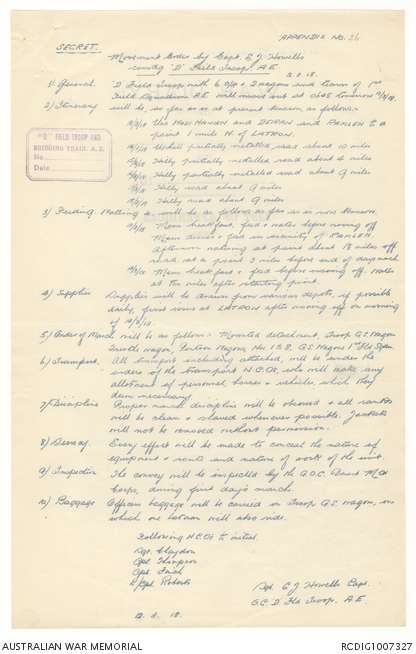 APPENDIX NO. 26
SECRET.
Movement Order by Capt. E J Howells
comdg "D" Field Troop. A.E
1) General. "D" Field Troop with 6 and 2 wagons and teams of 1st
Field Squadron A.E will move out at
2) Itinerary will be, as far as at present known, as follows:-
Via and DEIRAN and RAMLEH to a
point 1 mile N of LATRON.
Uphill partially metalled road about 10 miles
Hilly partially metalled road about 4 miles
Hilly partially metalled road about 9 miles
Hilly road about 9 miles
Hilly road about 9 miles
"D" FIELD TROOP AND
BRIDGING TRAIN, A. E.
No.
Date
3) Feeding Watering will be as follows as far as is now known
Men breakfast, feed & water before moving off
Men dinner & feed in vicinity of RAMLEH
Afternoon watering at point about 18 miles off
road at a point 3 miles before end of days march
Men breakfast & feed before moving off. Water
at few miles after starting point.
4) Supplies Supplies will be drawn from various depots, if possible
daily, first issue at LATRON after moving off on morning
of
5) Order of March will be as follows:- Mounted detachment, Troop G.S. Wagon
Trestle wagon, Pontoon Wagons, Nos 1 & 2, G.S. Wagons 1st Fld Sqdn.
6) Transport. All transport including attached, will be under the
orders of the transport N.C.Os, who will make any
allotment of personnel horses & vehicles, which they
deem necessary.
7) Discipline Proper march discipline will be observed & all ranks
will be clean & shaved whenever possible. Jackets
will not be removed without permission.
8) Secrecy. Every effort will be made to conceal the nature of
equipment & route and nature of work of the unit.
9) Inspection The convoy will be inspected by the G.O.C. Desert Mtd
Corps, during first day's march.
10) Baggage Officers baggage will be carried in Troop G.S. wagon, on
which one batman will also ride.
Following N.C.Os to initial.
Sgt. Claydon
Cpl. Thompson
Cpl.
L/Cpl Roberts
Sgd. E J Howells Capt.
O.C. D Fld Troop. A.E.
AUSTRALIAN WAR MEMORIAL
RCDIG1007327